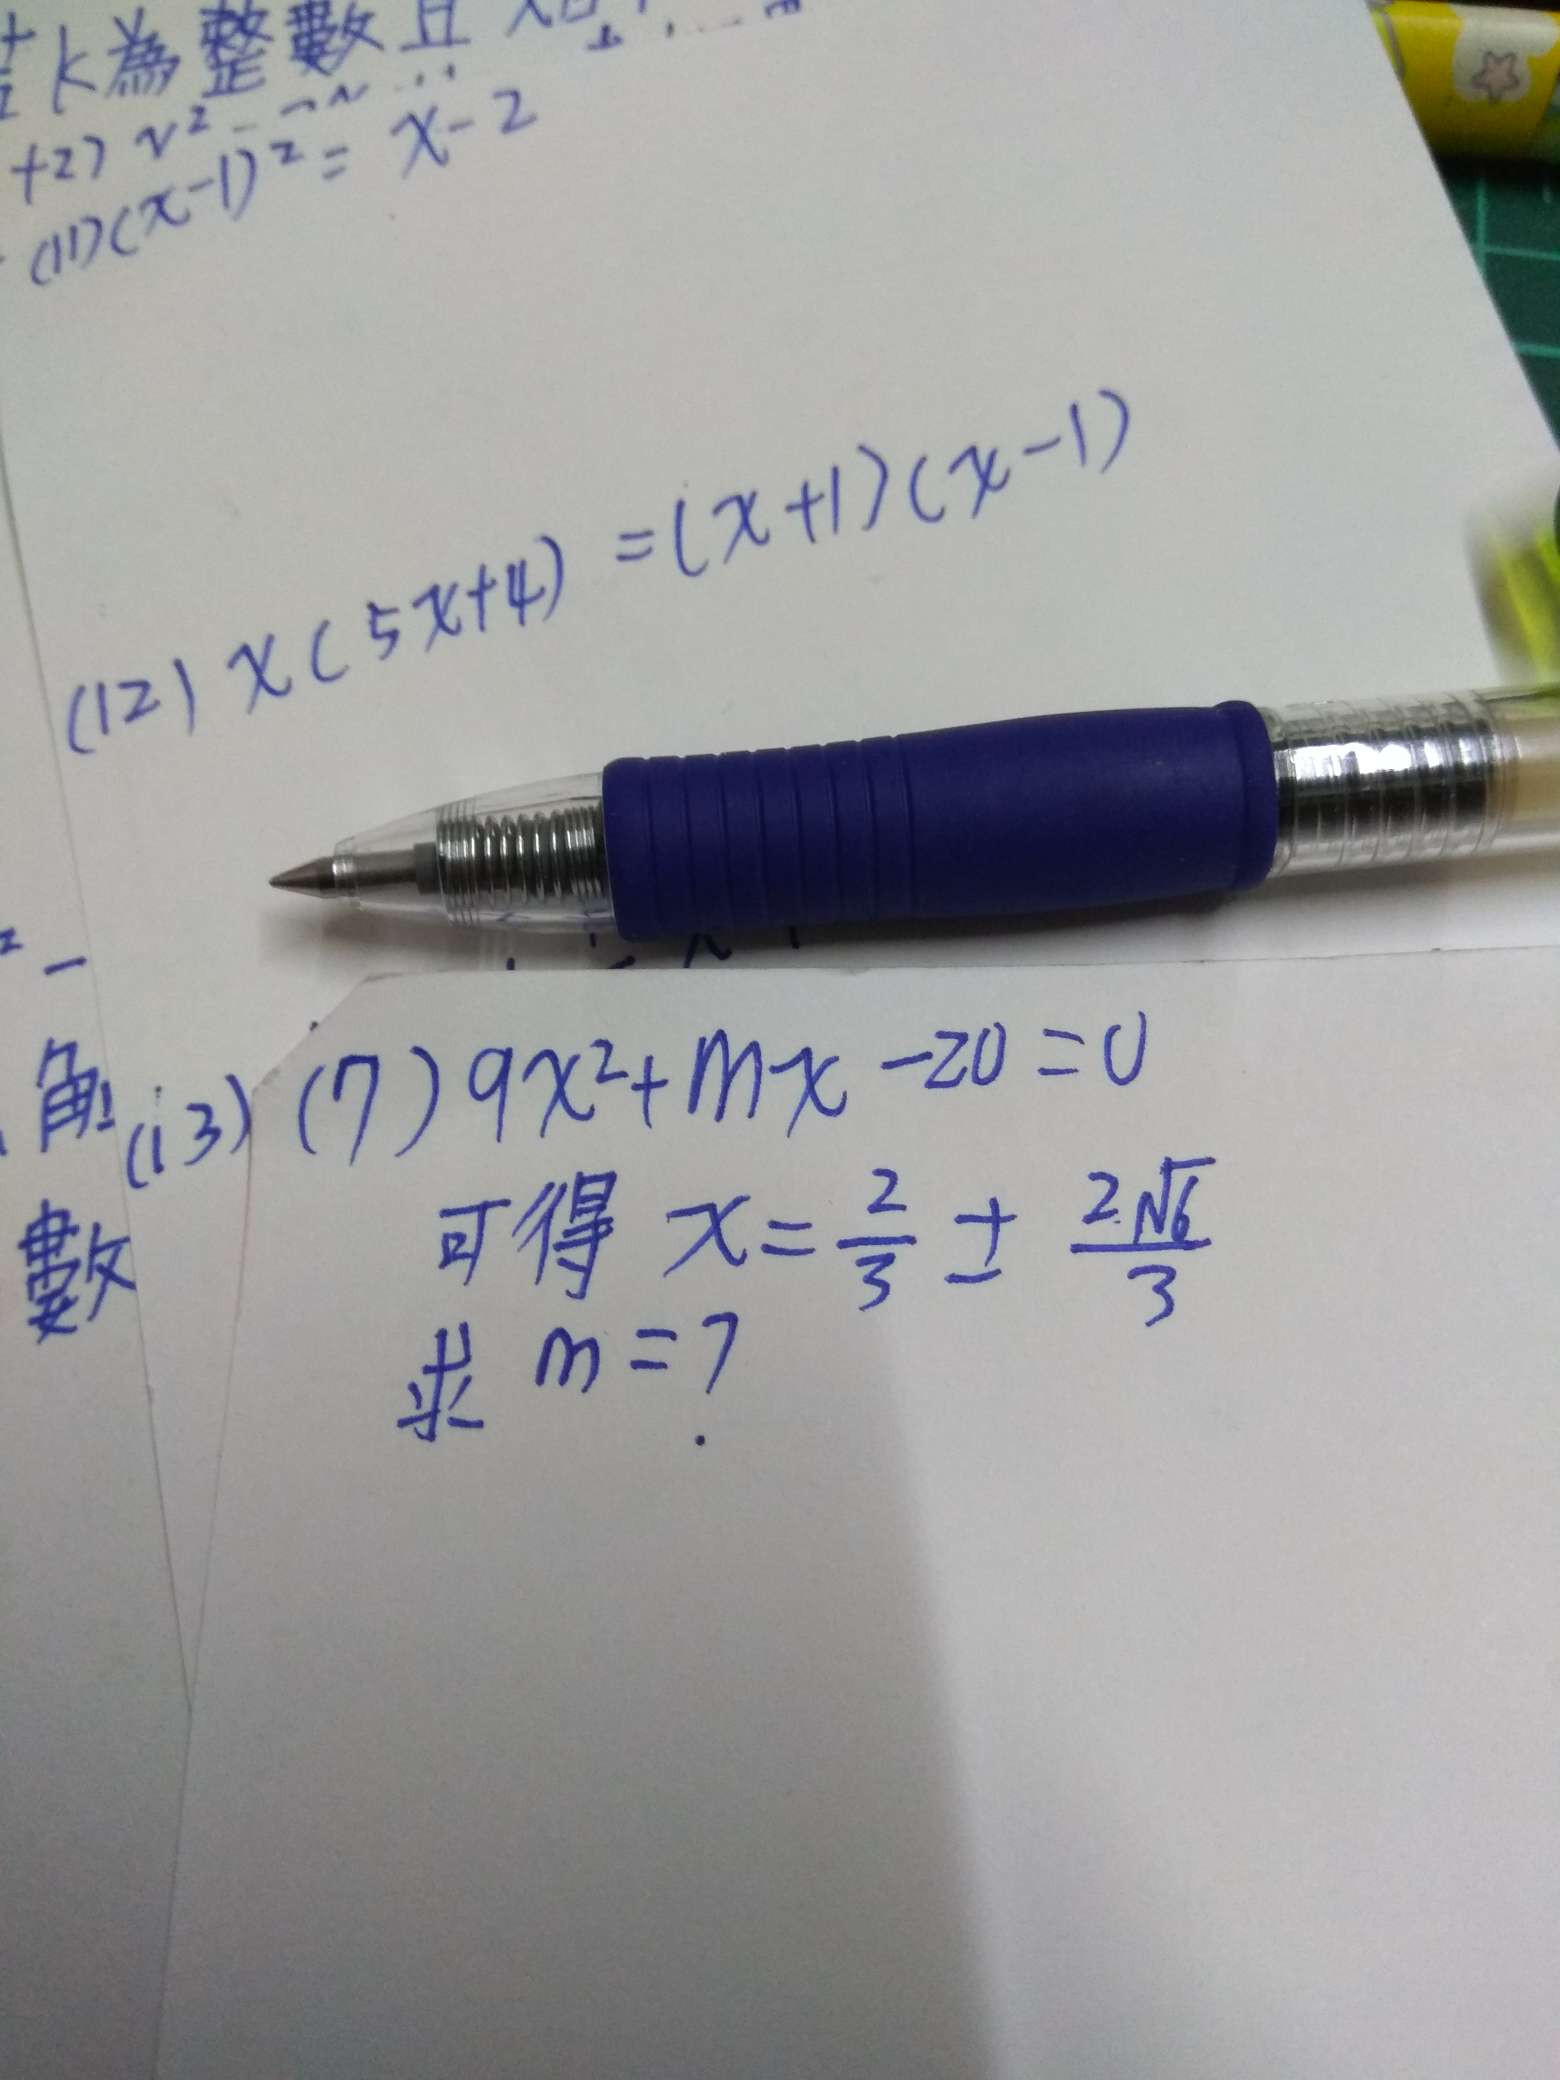 k為整數且
+2)
(11)(x-1)² = x-2
(12) x(5x+4) =(x+1)(x-1)
角
(13)
數
(7) 9x²+mx-20=0
可得 x=2/3 ± 2√6/3
求 m=?